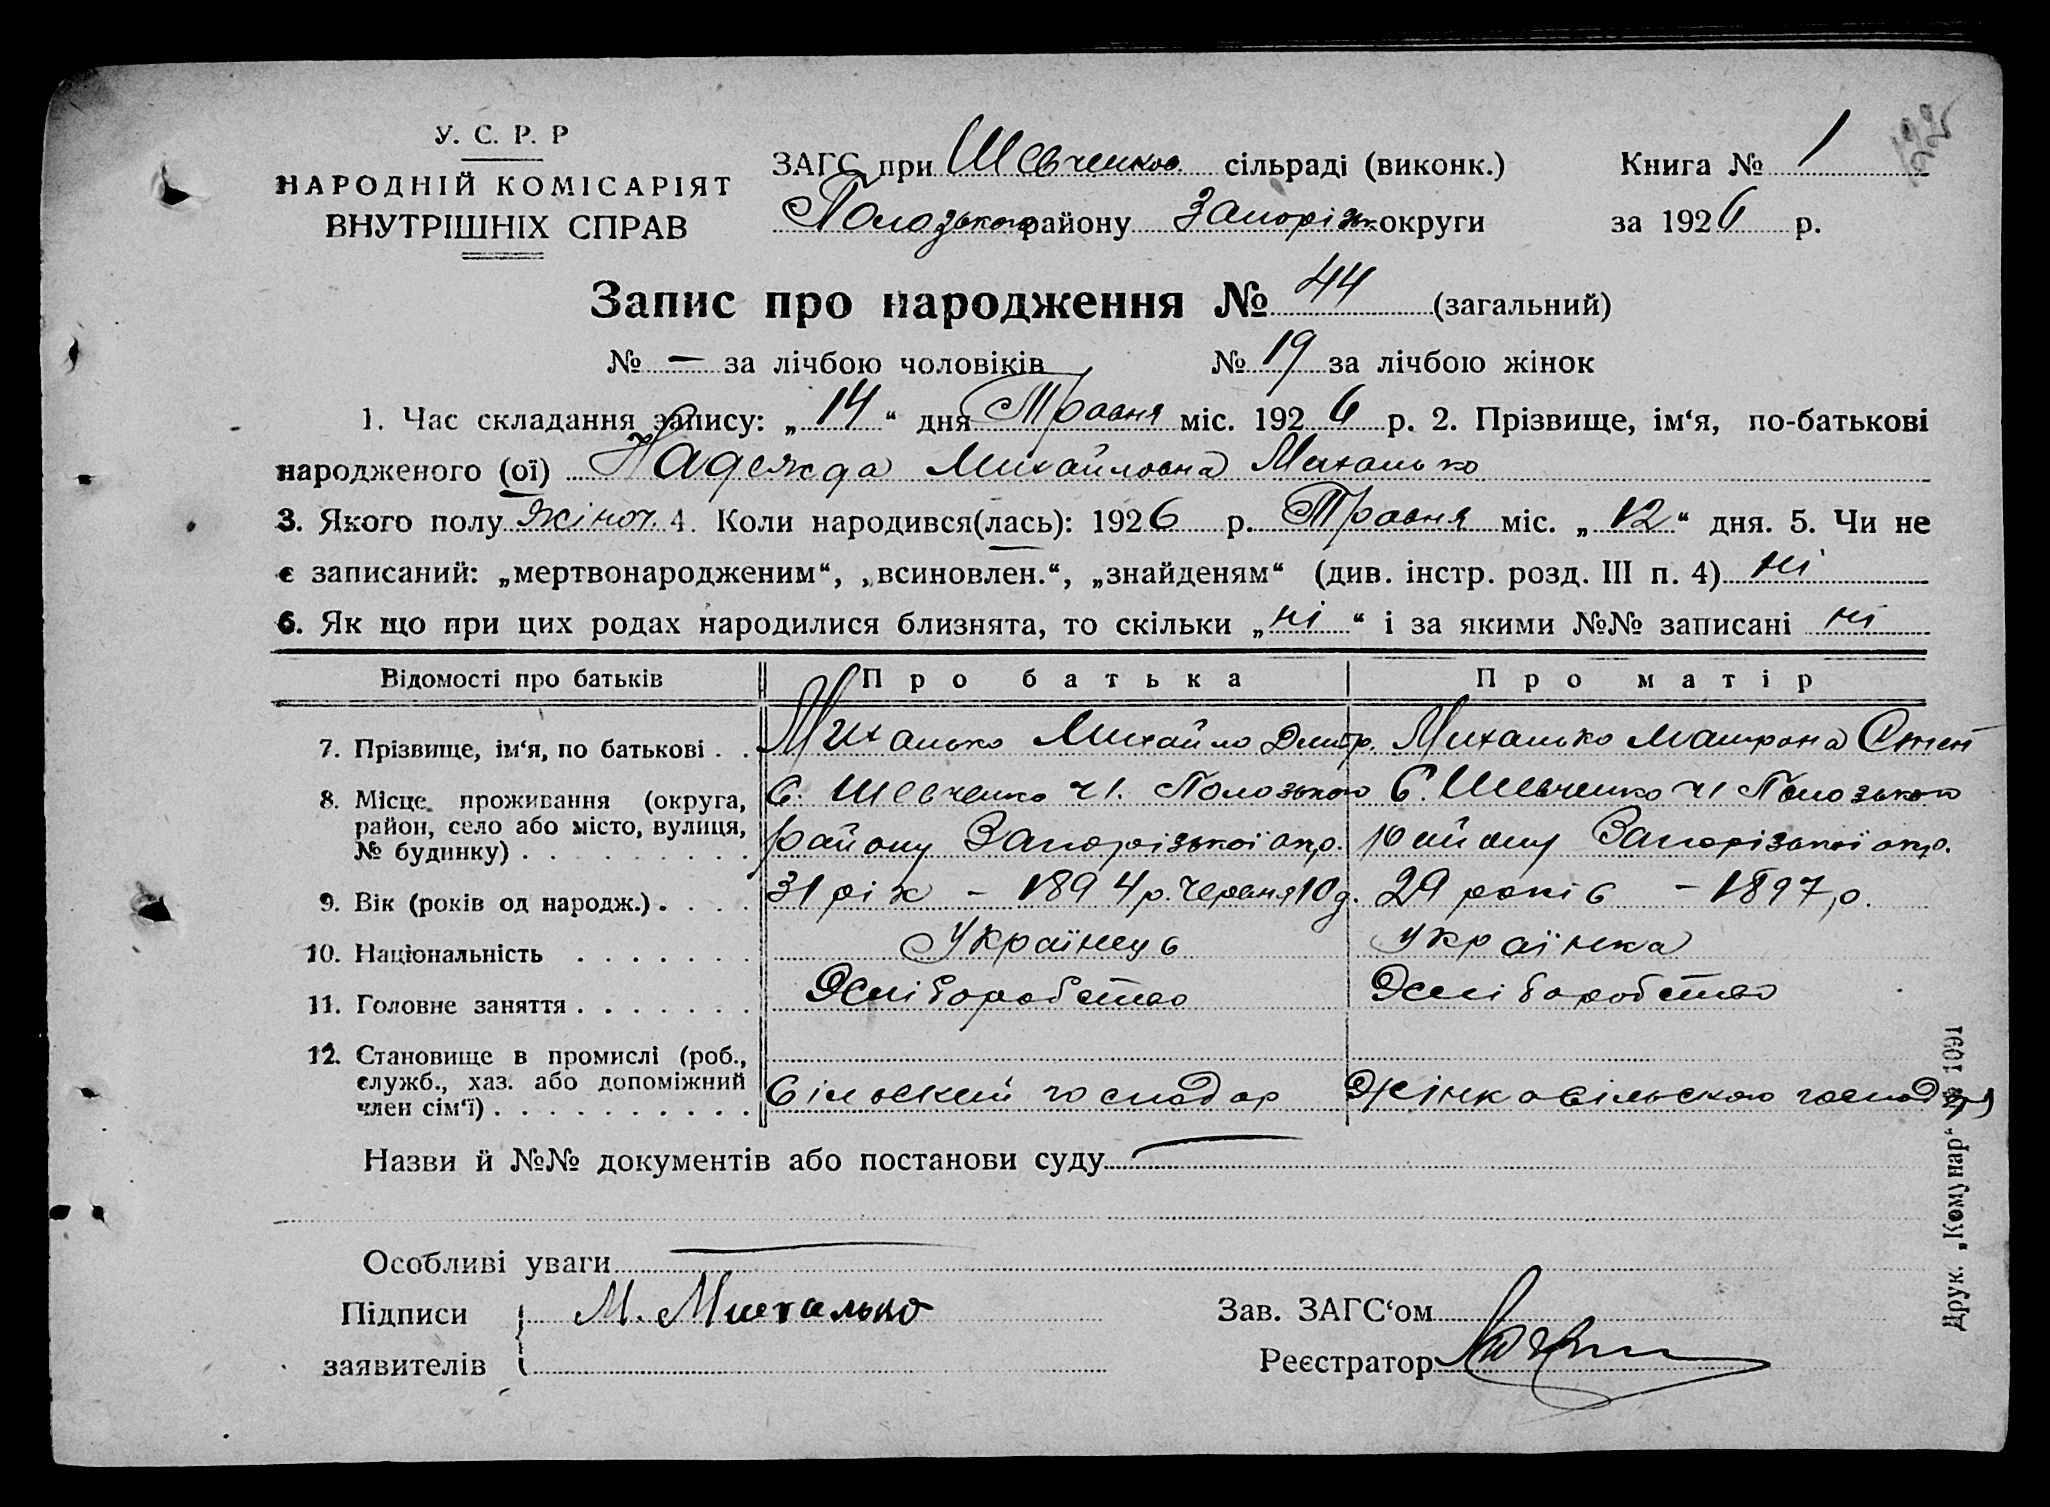 У. С. Р. Р
НАРОДНІЙ КОМІСАРІЯТ
ВНУТРІШНІХ СПРАВ
ЗАГС при Шевченков. сільраді (виконк.)
Полозького району Запорізьк. округи
Книга № 1
за 1926 р.
Запис про народження № 44 (загальний)
№ — за лічбою чоловіків № 19 за лічбою жінок
1. Час складання запису: „ 14 “ дня Травня міс. 1926 р. 2. Прізвище, ім‘я, по-батькові
народженого (ої) Надежда Михайловна Михалько
3. Якого полу жіноч. 4. Коли народився(лась): 1926 р. Травня міс. „ 12 “ дня. 5. Чи не
є записаний: „мертвонародженим“, „всиновлен.“, „знайденям“ (див. інстр. розд. III п. 4) ні
6. Як що при цих родах народилися близнята, то скільки „ ні “ і за якими №№ записані ні
Відомості про батьків Про батька Про матір
7. Прізвище, ім‘я, по батькові . . Михалько Михайло Дмитр. Михалько Матрона Степ
8. Місце проживання (округа, район, село або місто, вулиця, № будинку) . . . . . . . . .
С. Шевченко ч1. Полозького С. Шевченко ч1 Полозького
району Запорізької окр. району Запорізької окр.
9. Вік (років од народж.) . . . . 31 рік – 1894 р. Червня 10 д. 29 років – 1897 р.
10. Національність . . . . . . . Українець Українка
11. Головне заняття . . . . . . . Хліборобство Хліборобство
12. Становище в промислі (роб.,
служб., хаз. або допоміжний
член сім‘ї) . . . . . . . . . . Сільский господар Жінка сільского господаря
Назви й №№ документів або постанови суду —
Особливі уваги —
Підписи М. Михалько
заявителів
Зав. ЗАГС‘ом
Реєстратор
Друк. „Комунар“ № 1091